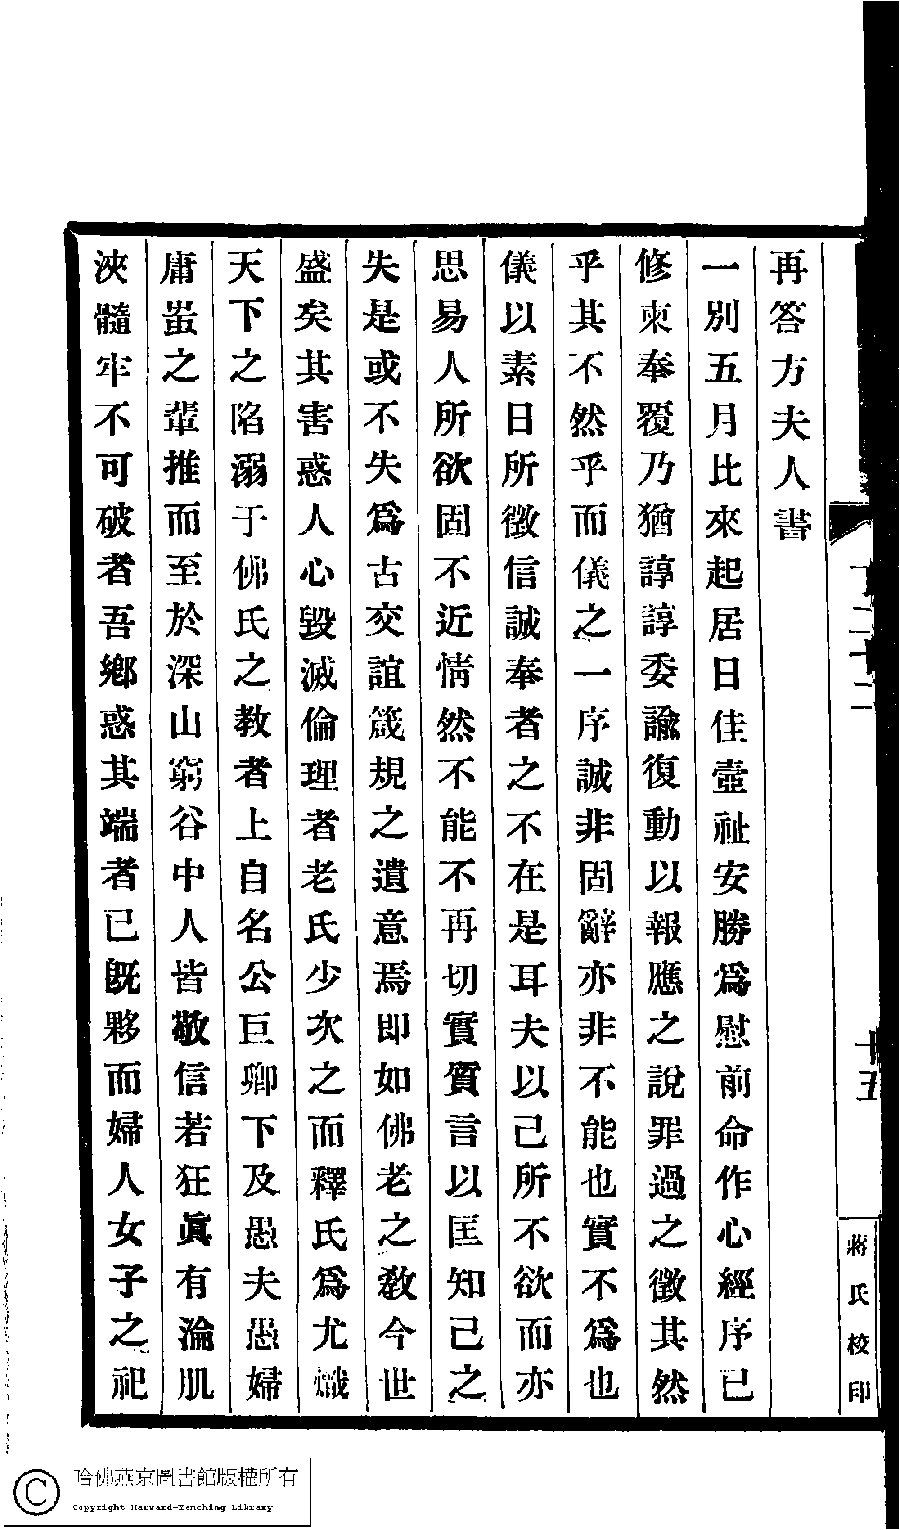 再答方夫人書
一別五月比來起居日佳壼祉安勝爲慰前命作心經序已
修柬奉覆乃猶諄諄委諭復動以報應之說罪過之徵其然
乎其不然乎而儀之一序誠非固辭亦非不能也實不爲也
儀以素日所徵信誠奉者之不在是耳夫以己所不欲而亦
思易人所欲固不近情然不能不再切實質言以匡知己之
失是或不失爲古交誼箴規之遺意焉即如佛老之教今世
盛矣其害惑人心毀滅倫理者老氏少次之而釋氏爲尤熾
天下之陷溺于佛氏之教者上自名公巨卿下及愚夫愚婦
庸蚩之輩推而至於深山窮谷中人皆敬信若狂眞有淪肌
浹髓牢不可破者吾鄉惑其端者已旣夥而婦人女子之祀
二十二
十五
蔣氏校印
哈佛燕京圖書館版權所有
Copyright Harvard-Yenching Library